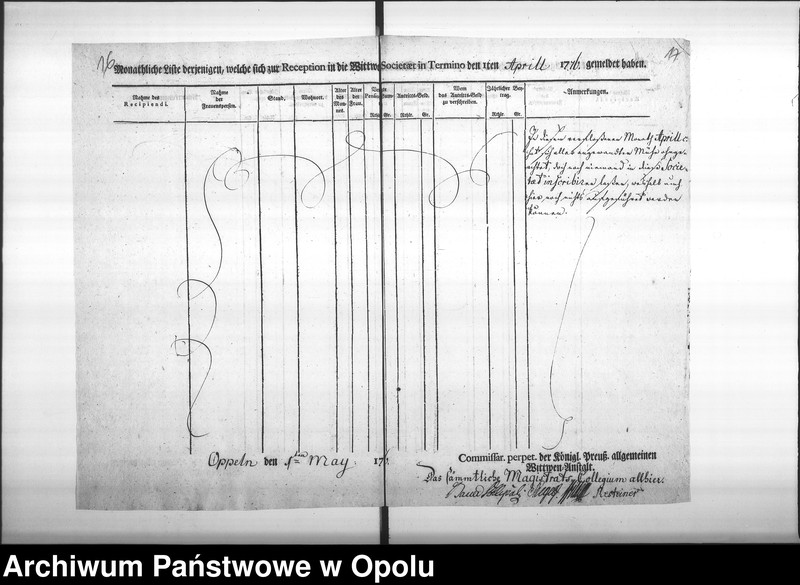 16
17
Monathliche Liste derjenigen, welche sich zur Reception in die Wittwe Societæt in Termino den 1ten Aprill 1776. gemeldet haben.
Nahme des Recipiendi.
Nahme der Frauenspersen.
Stand.
Wohnort.
Alter des Mannes.
Alter der Frau.
Rthlr. Gr.
Antritts-Geld.
Rthlr. Gr.
Wem das Antritts-Geld zu verschreiben.
Jährlicher Beytrag.
Rthlr. Gr.
Anmerkungen.
In diesem verfloßenen Monath Aprill c.
hat sich aller angewandten Mühe ohnge-
achtet doch noch niemand in diese Socie-
tæt inscribiren laßen, weshalb auch
hier noch nichts aufgeführet werden
können.
Oppeln den 1ten May 177
Commissär. perpet. der Königl. Preuß. allgemeinen
Wittwen-Anstalt.
Das sämmtliche Magistrats-Collegium allhier.
Archiwum Państwowe w Opolu